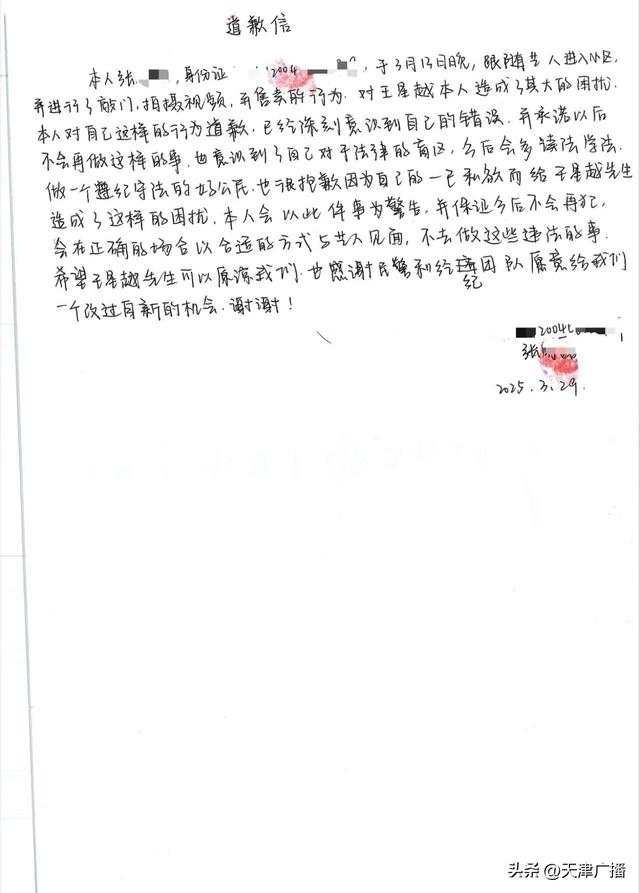 道歉信
本人张 ,身份证 2004 ,于3月13日晚,跟随艺人进入小区,
并进行了敲门,拍摄视频,并售卖的行为.对王星越本人造成了莫大的困扰.
本人对自己这样的行为道歉,已经深刻意识到自己的错误.并承诺以后
不会再做这样的事.也意识到了自己对于法律的盲区,今后会多读法学法.
做一个遵纪守法的好公民.也很抱歉因为自己的一己私欲而给王星越先生
造成了这样的困扰.本人会以此件事为警告,并保证今后不会再犯,
会在正确的场合以合适的方式与艺人见面,不去做这些违法的事.
希望王星越先生可以原谅我们.也感谢民警和经纪团队愿意给我们
一个改过自新的机会.谢谢!
2004
张
2025.3.29.
头条@天津广播